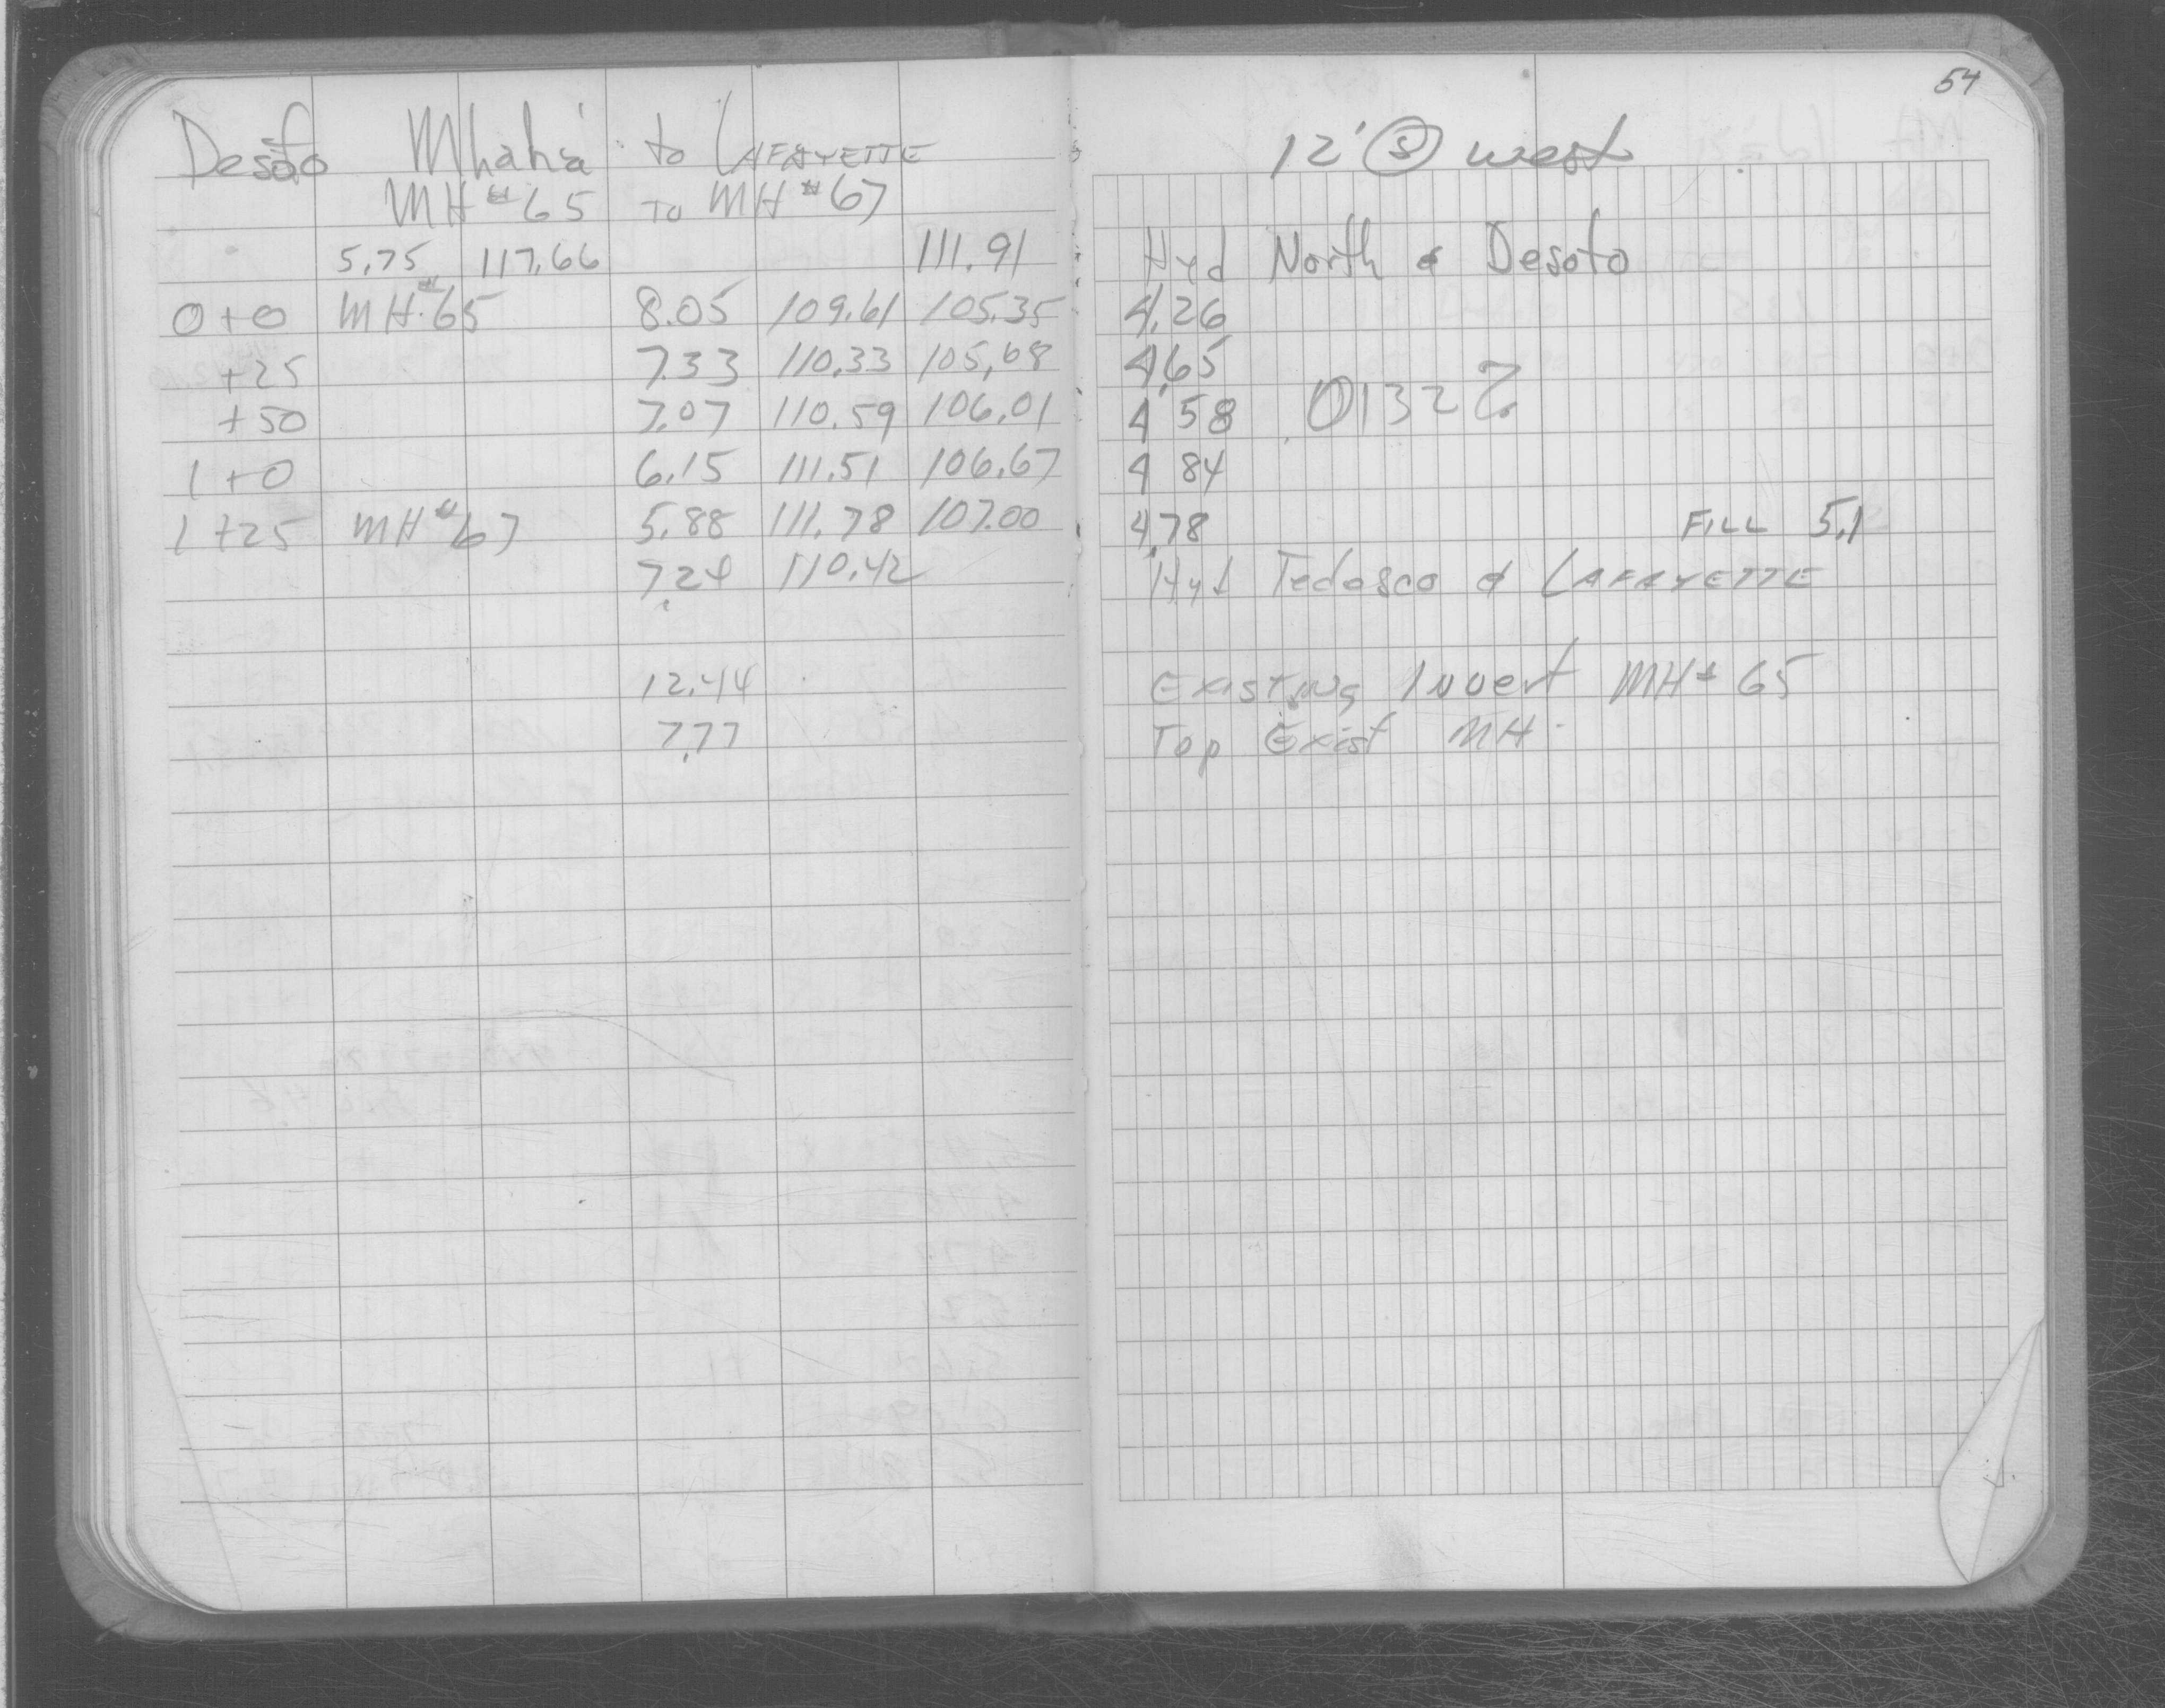 54
Desoto to LAFAYETTE 12' Ⓢ west
MH #65 TO MH #67
5.75 117.66 111.91 Hyd North & Desoto
0+0 MH #65 8.05 109.61 105.35 4.26
+25 7.33 110.33 105.68 4.65
+50 7.07 110.59 106.01 4 58 .0132 %
1+0 6.15 111.51 106.67 4 84
1+25 MH #67 5.88 111.78 107.00 4.78 FILL 5.1
7.24 110.42 Hyd Tedesco & LAFAYETTE
12.44 Existing Invert MH # 65
7.77 Top Exist MH